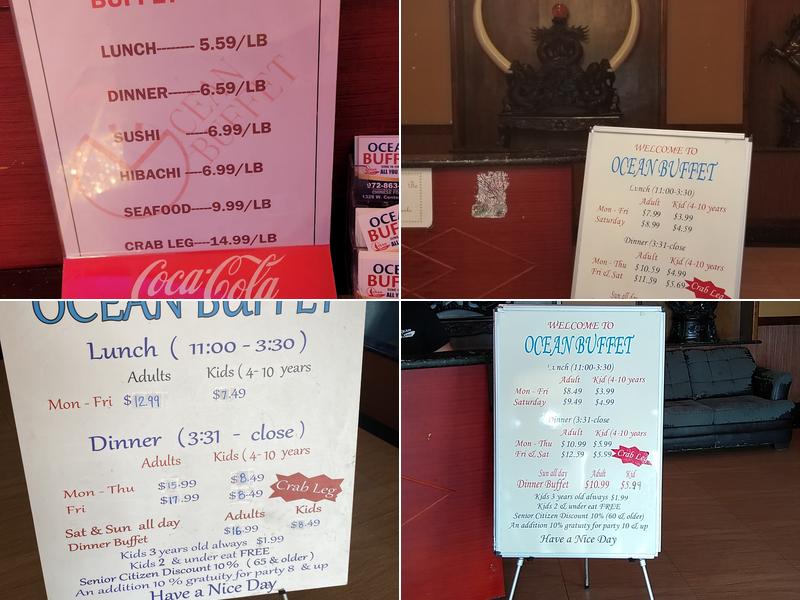 BUFFET
LUNCH-------- 5.59/LB
DINNER-------6.59/LB
SUSHI -----6.99/LB
HIBACHI ----6.99/LB
SEAFOOD-----9.99/LB
CRAB LEG----14.99/LB
OCEAN BUFFET
Coca-Cola
OCEA
BUFF
ALL YOU
972-863-
CHINESE FO
1328 W. Cente
OCEA
BUF
ALL YO
OCE
BUF
WELCOME TO
OCEAN BUFFET
Lunch (11:00-3:30)
Adult Kid (4-10 years
Mon - Fri $7.99 $3.99
Saturday $8.99 $4.59
Dinner (3:31-close
Adult Kid (4-10 years
Mon - Thu $10.59 $4.99
Fri & Sat $11.59 $5.69
Crab Leg
Sun all day
OCEAN BUFFET
Lunch ( 11:00 - 3:30 )
Adults Kids ( 4- 10 years
Mon - Fri $12.99 $7.49
Dinner (3:31 - close )
Adults Kids ( 4 - 10 years
Mon - Thu $15.99 $8.49
Fri $17.99 $8.49
Crab Leg
Sat & Sun all day Adults Kids
Dinner Buffet $16.99 $8.49
Kids 3 years old always $1.99
Kids 2 & under eat FREE
Senior Citizen Discount 10% ( 65 & older )
An addition 10 % gratuity for party 8 & up
Have a Nice Day
WELCOME TO
OCEAN BUFFET
Lunch (11:00-3:30)
Adult Kid (4-10 years
Mon - Fri $8.49 $3.99
Saturday $9.49 $4.99
Dinner (3:31-close
Adult Kid (4-10 years
Mon - Thu $10.99 $5.99
Fri & Sat $12.59 $5.59
Crab Leg
Sun all day Adult Kid
Dinner Buffet $10.99 $5.99
Kids 3 years old always $1.99
Kids 2 & under eat FREE
Senior Citizen Discount 10% (60 & older)
An addition 10% gratuity for party 10 & up
Have a Nice Day